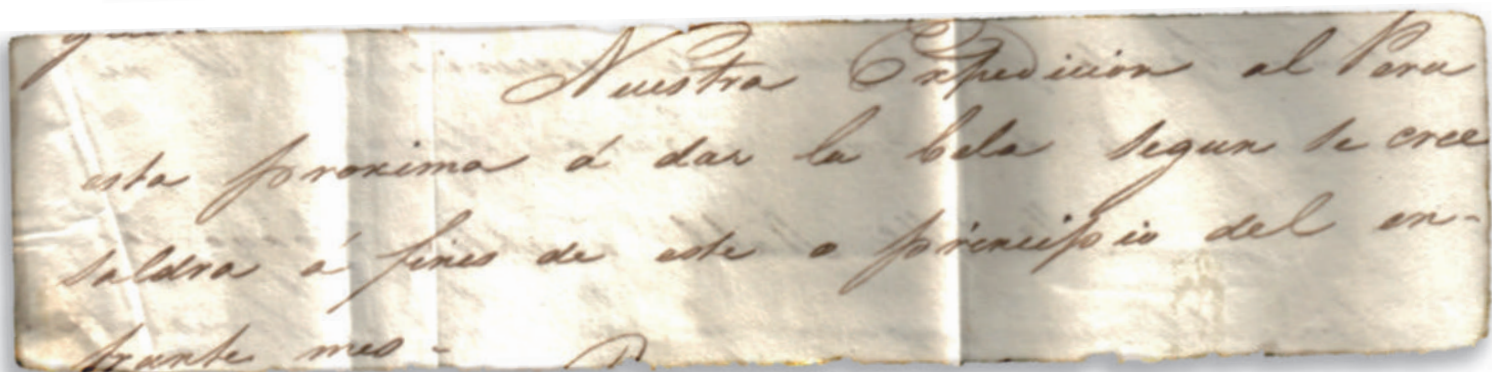 Nuestra Expedicion al Peru
esta proxima á dar la bela segun se cree
saldra á fines de este o principio del en-
trante mes -